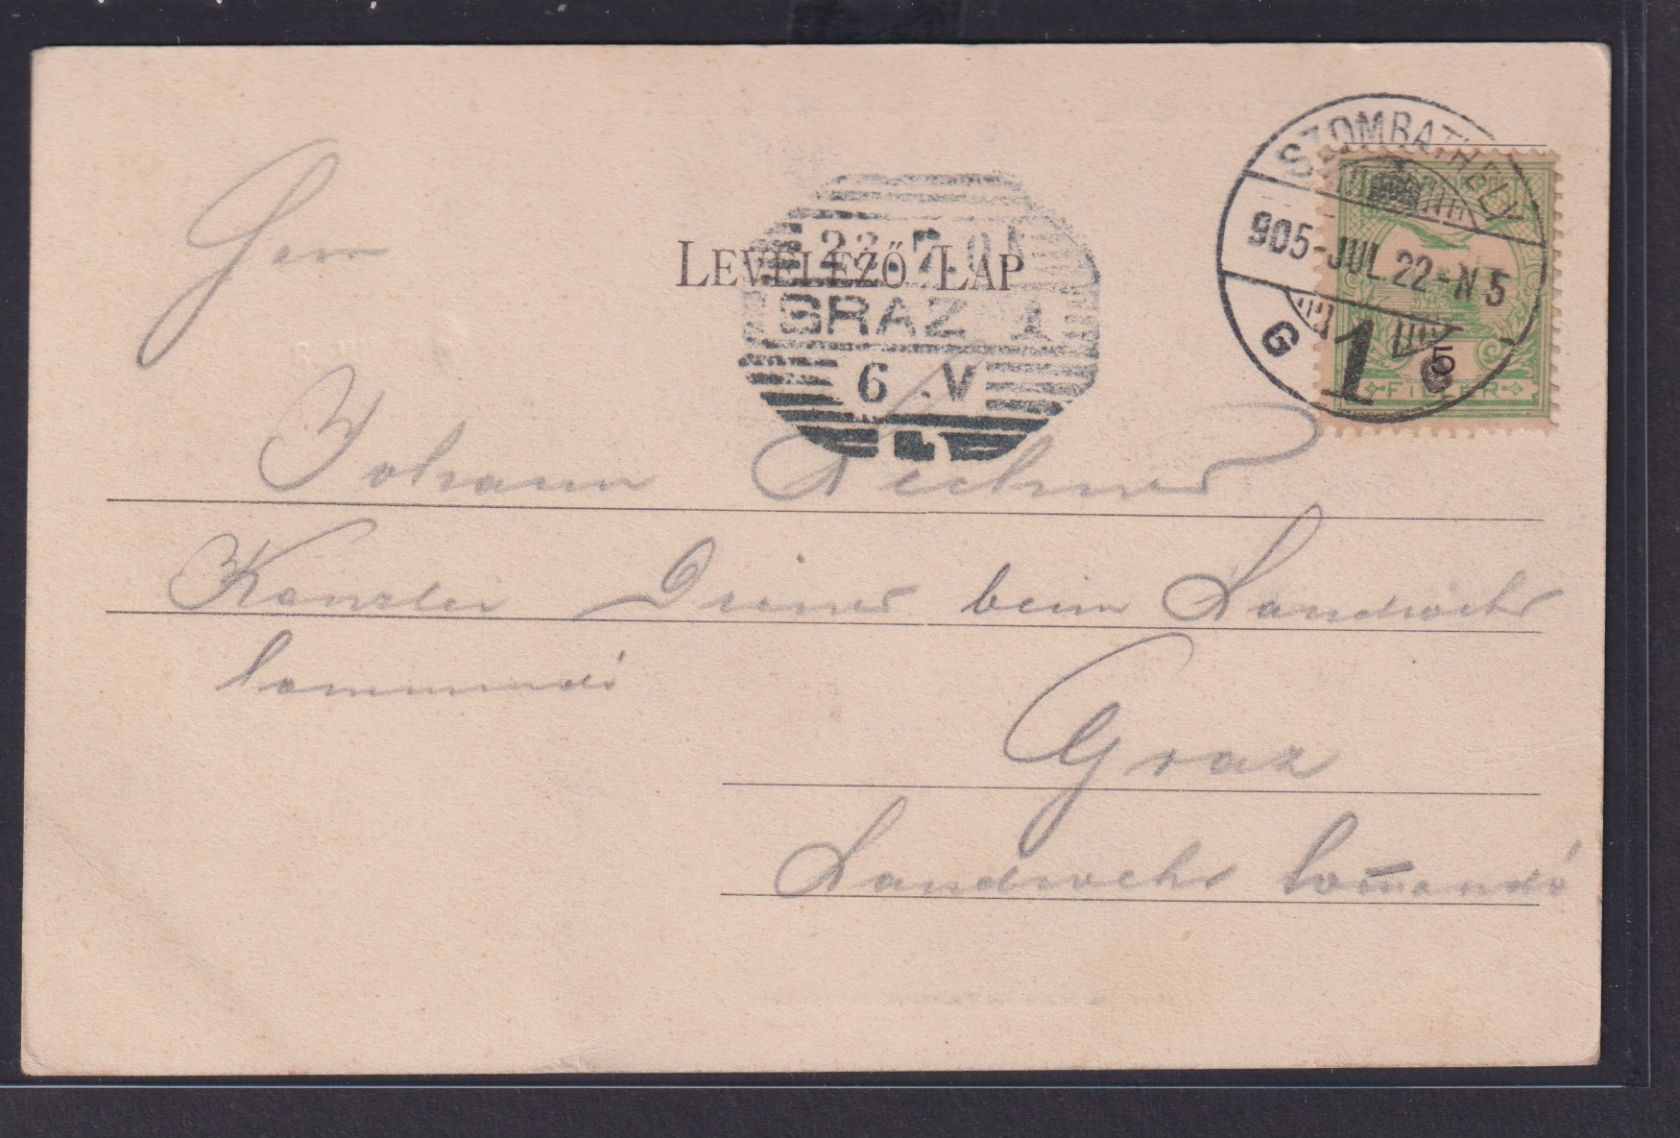 SZOMBATHELY
905-JUL.22-N5
G 1
5
FILLÉR
LEVELEZŐ LAP
22.7.0
GRAZ 1
6 .V
Herrn
Johann Lechner
Kanzlei Diener beim Landwehr
Commando
Graz
Landwehr Com̅ando